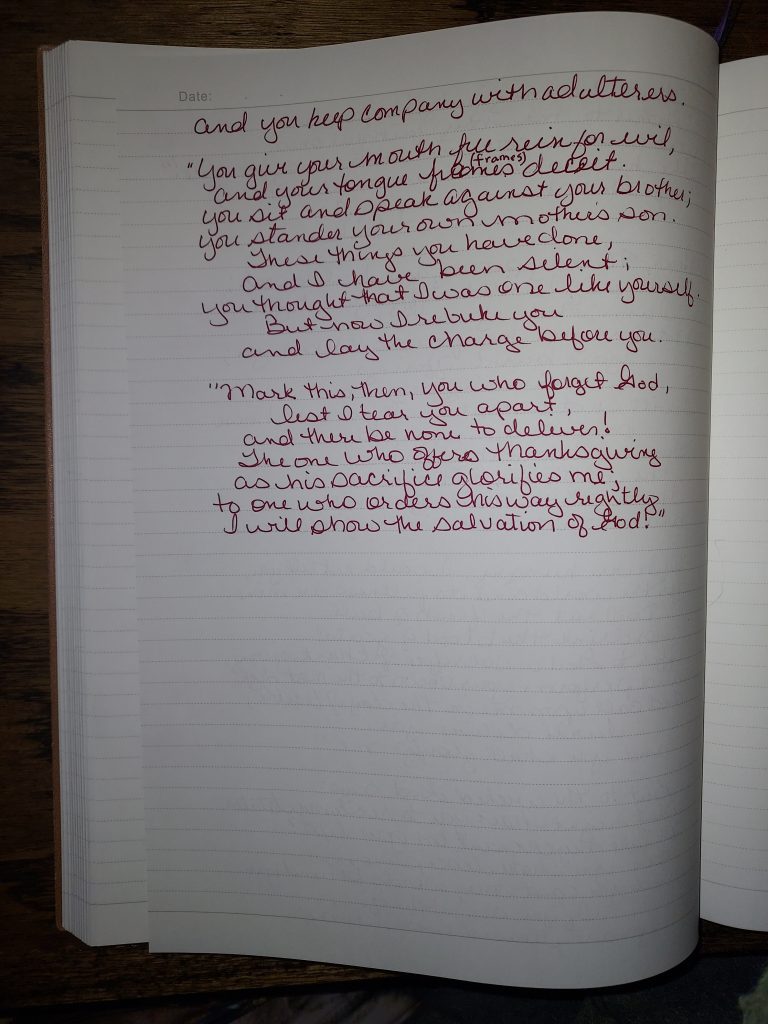 Date:
and you keep company with adulterers.
"You give your mouth free rein for evil,
(frames)
and your tongue frames deceit.
you sit and speak against your brother;
you slander your own mother's son.
These things you have done,
and I have been silent;
you thought that I was one like yourself.
But now I rebuke you
and lay the charge before you.
"Mark this, then, you who forget God,
lest I tear you apart,
and there be none to deliver!
The one who offers thanksgiving
as his sacrifice glorifies me;
to one who orders his way rightly
I will show the salvation of God!"